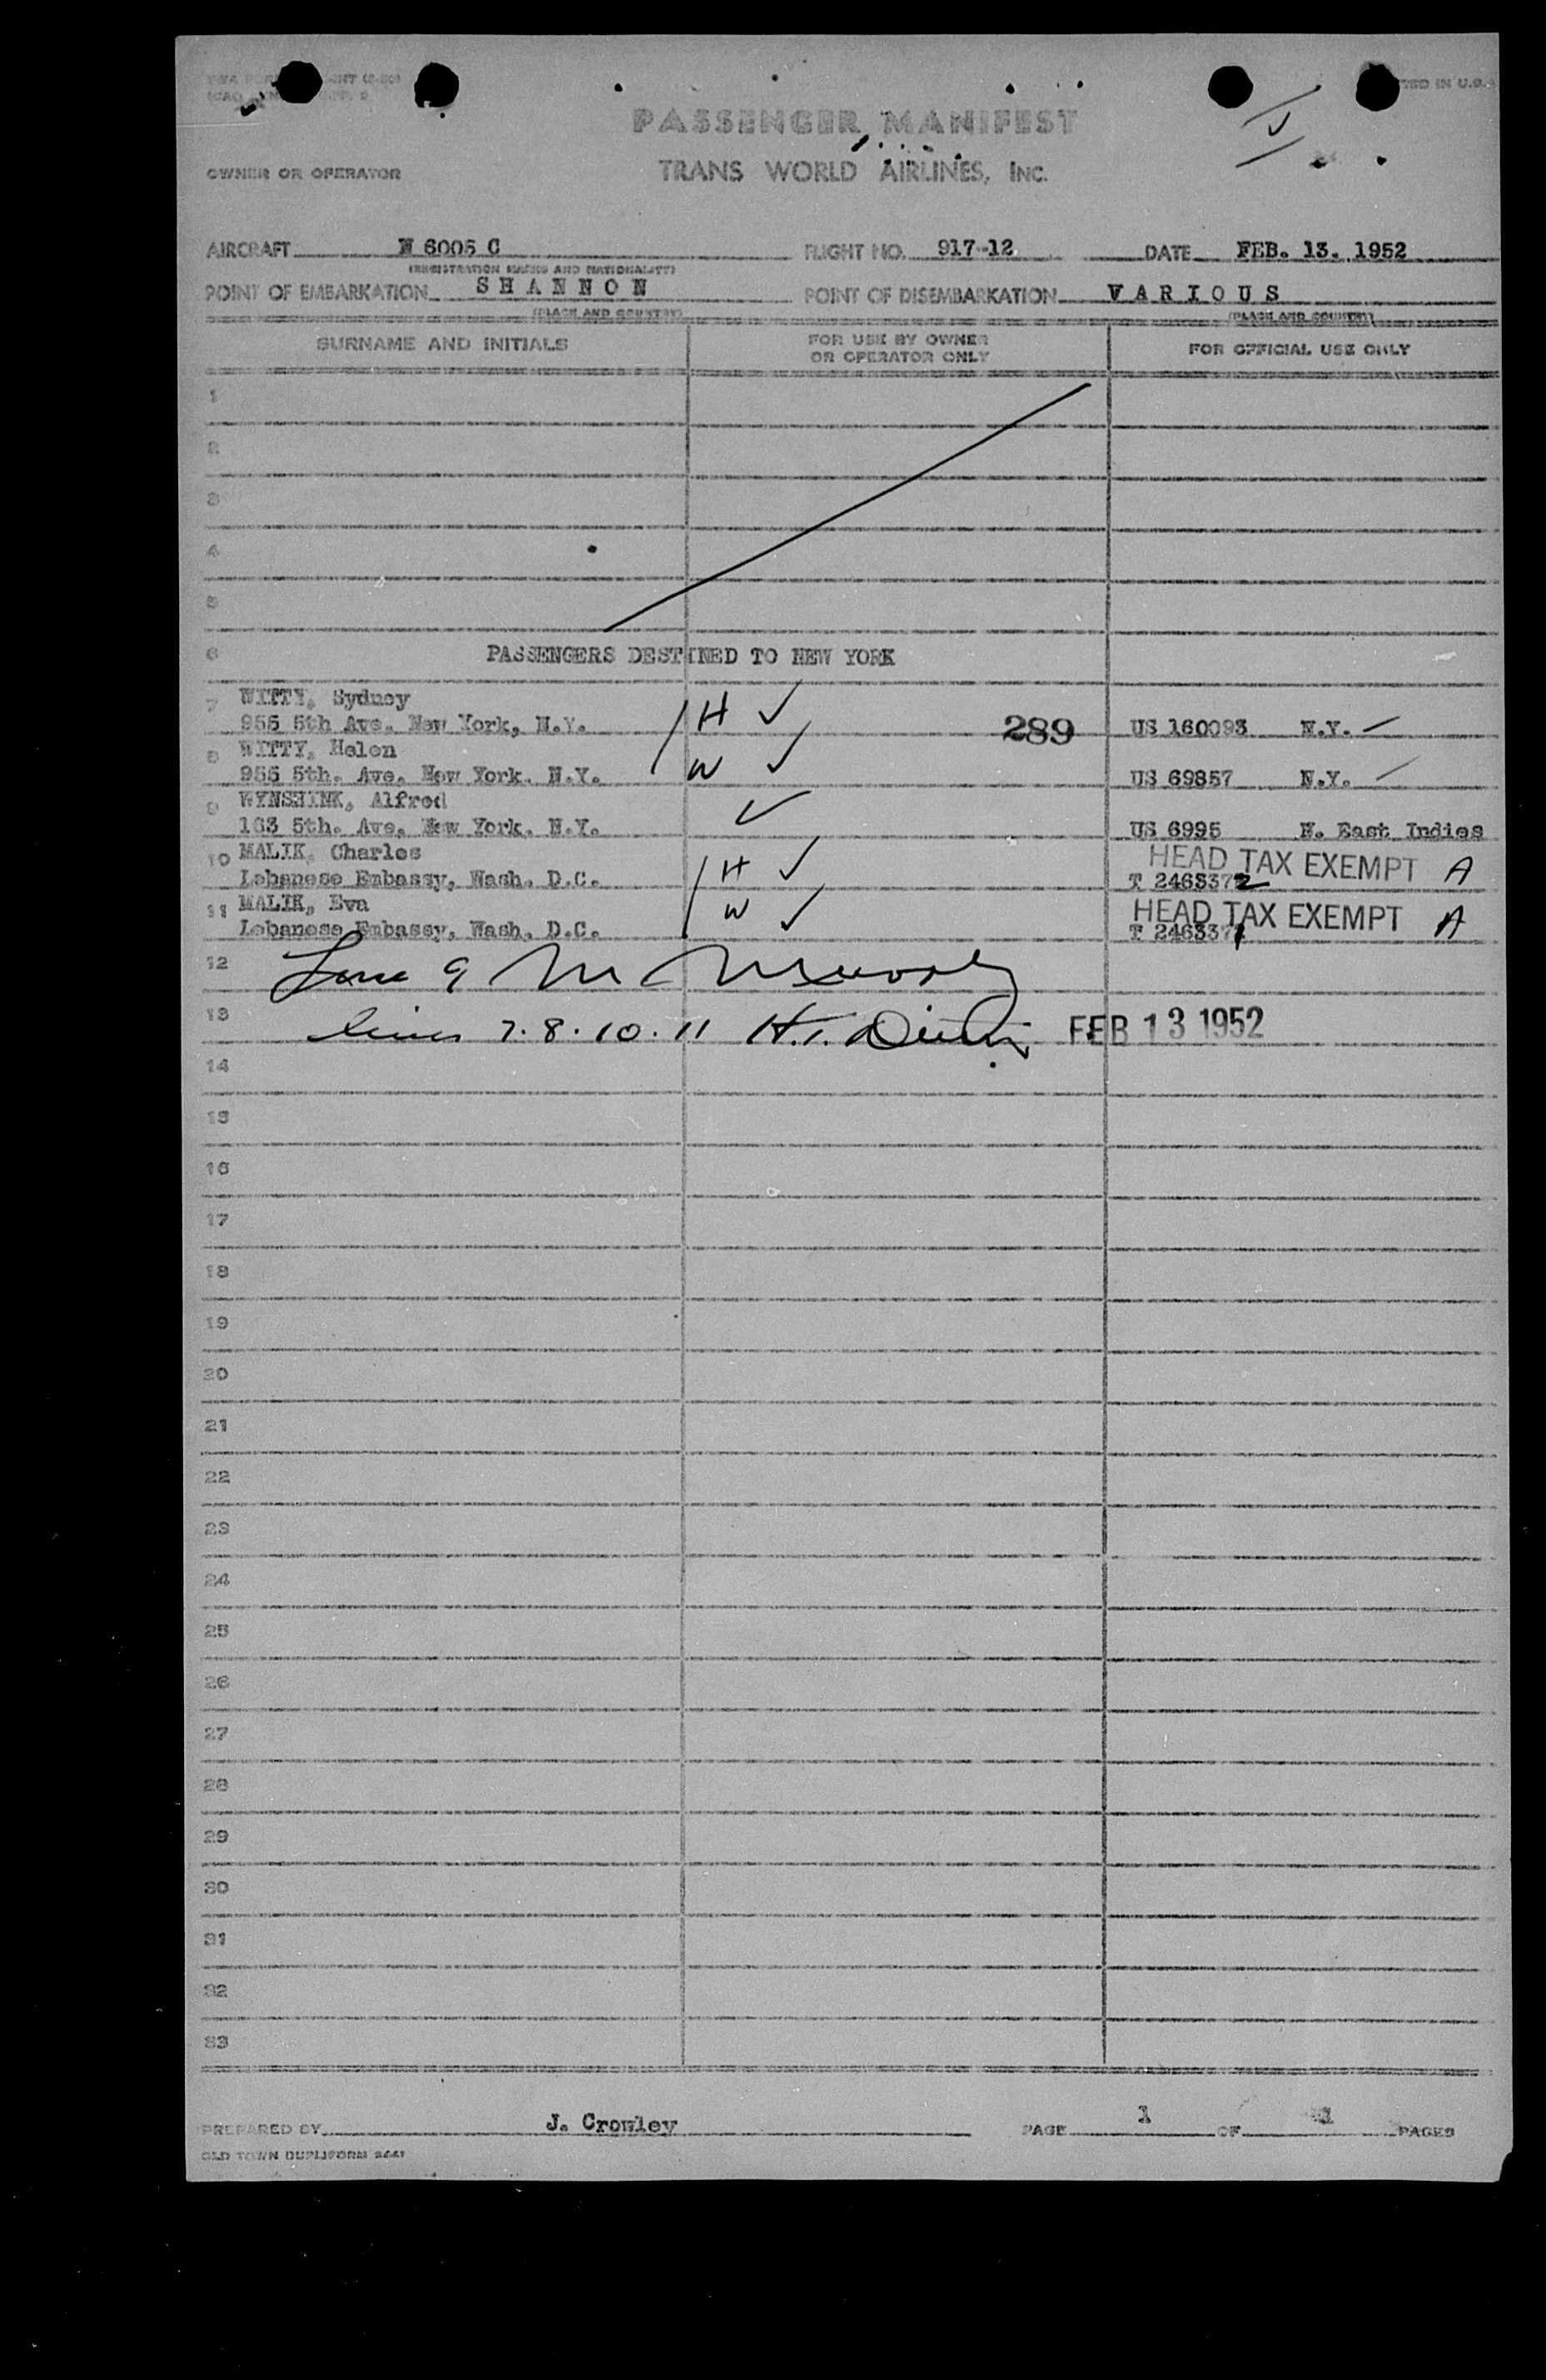 PASSENGER MANIFEST
OWNER OR OPERATOR TRANS WORLD AIRLINES, INC.
AIRCRAFT N 6005 C FLIGHT NO. 917-12 DATE FEB. 13. 1952
(REGISTRATION MARKS AND NATIONALITY)
POINT OF EMBARKATION SHANNON POINT OF DISEMBARKATION VARIOUS
(PLACE AND COUNTRY) (PLACE AND COUNTRY)
SURNAME AND INITIALS FOR USE BY OWNER OR OPERATOR ONLY FOR OFFICIAL USE ONLY
1
2
3
4
5
6 PASSENGERS DESTINED TO NEW YORK
7 WITTY, Sydney
955 5th Ave. New York, N.Y. H ✓ 289 US 160093 N.Y.
8 WITTY, Helen
955 5th. Ave. New York. N.Y. W ✓ US 69857 N.Y.
9 WYNSHINK, Alfred ✓
163 5th. Ave. New York. N.Y. US 6995 N. East Indies
10 MALIK, Charles H ✓ HEAD TAX EXEMPT A
Lebanese Embassy, Wash. D.C. T 2463372
11 MALIK, Eva W ✓ HEAD TAX EXEMPT A
Lebanese Embassy, Wash. D.C. T 2463371
12 Line 9
13 lines 7.8.10.11 H.T. FEB 13 1952
14
15
16
17
18
19
20
21
22
23
24
25
26
27
28
29
30
31
32
33
PREPARED BY J. Crowley PAGE 1 OF 1 PAGES
OLD TOWN DUPLIFORM